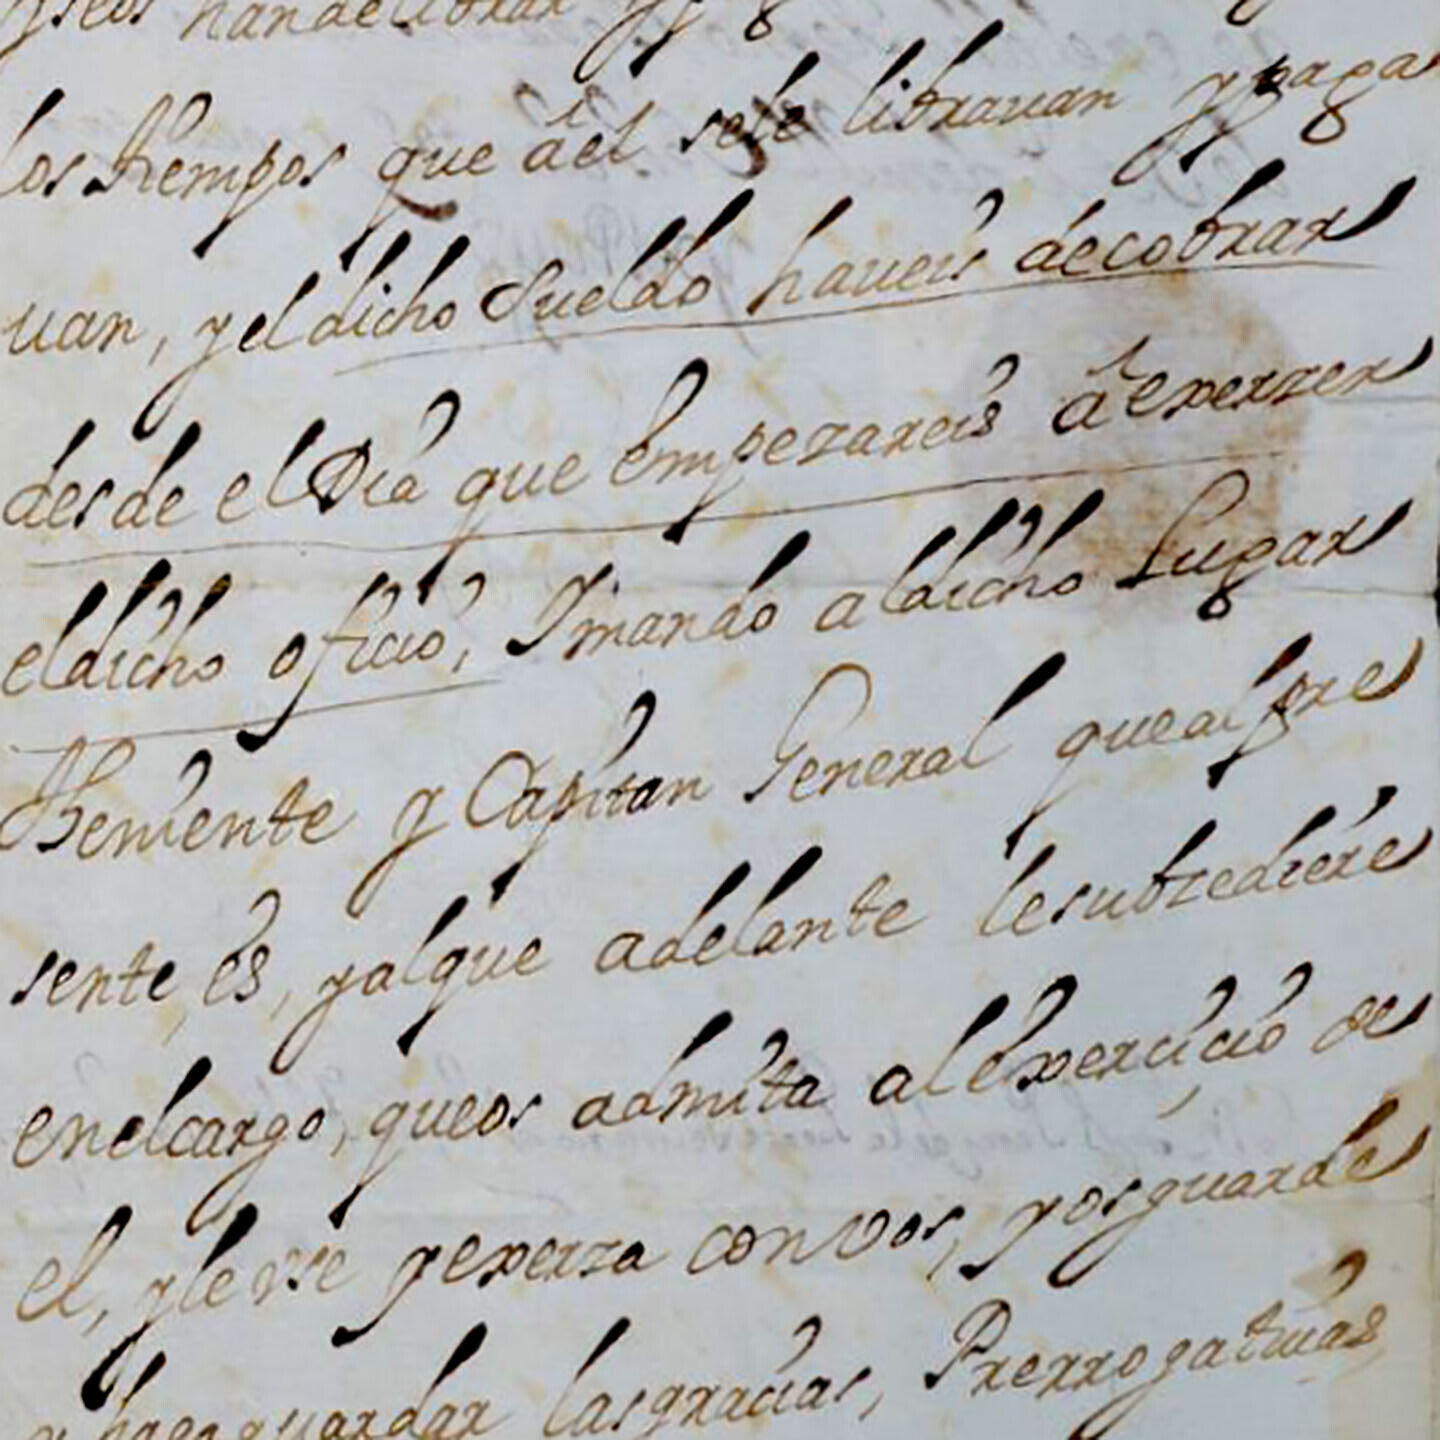 y se os han de librar y p
los tiempos que â el se le librauan y paga
uan, y el dicho Sueldo haueis de cobrar
desde el Dia que empezareis â exerzer
el dicho oficio, Y mando al dicho Lugar
Theniente y Capitan General que al pre
sente es, y al que adelante le subzediere
en el cargo, que os admita al exercicio de
el, y le vse y exerza con vos, y os guarde
y haga guardar las gracias, Prerrogatiuas,